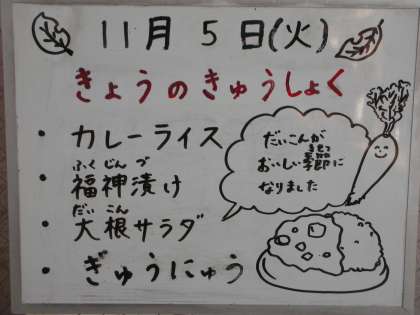 11月 5日(火)
きょうのきゅうしょく
・ カレーライス
ふくじんづ
・ 福神漬け
だいこん
・ 大根サラダ
・ ぎゅうにゅう
だいこんが
おいしい季節に
なりました